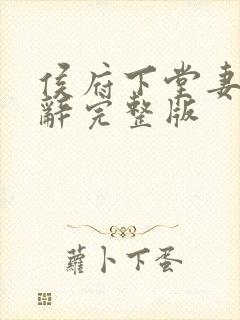 侯府下堂妻
辭完整版
蘿卜下蛋